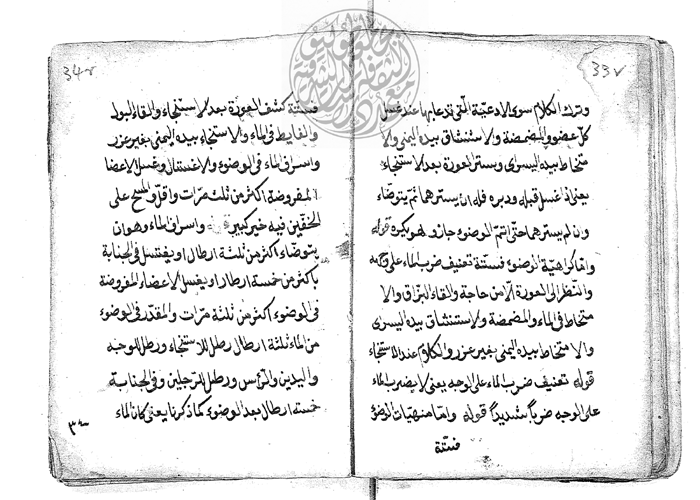 33v
وترك الكلام سوى الادعية التى تدعا بها عند غسل
كل عضو والمضمضة والاستنشاق بيده اليمنى والا
متخاط بيده اليسرى ويستر العورة بعد الاستنجاء
يعنى اذا غسل قبله ودبره فله ان يسترهما ثم يتوضاء
وان لم يسترهما حتى اتم الوضوء جاز ولهو يكره قوله
واما كراهية الوضوء فستة تعنيف ضرب الماء على وجهه
والنظر الى العورة الا من حاجة والقاء البزاق والا
متخاط فى الماء والمضمضة والاستنشاق بيده اليسرى
والامتخاط بيده اليمنى بغير عزر والكلام عند الاستنجاء
قوله تعنيف ضرب الماء على الوجه يعنى لا يضرب الماء
على الوجه ضربا شديدا قوله واما منهيات الوضوء
فستة
34v
فستة كشف العورة بعد الاستنجاء والقاء البول
والغايط فى الماء والاستنجاء بيده اليمنى بغير عزر
واسراف الماء فى الوضوء والاغتسال وغسل الاعضا
المفروضة اكثر من ثلث مرات واقل والمسح على
الخفين فيه خير كبير واسراف الماء وهو ان
يتوضاء اكثر من ثلثة ارطال او يغتسل فى الجنابة
باكثر من خمسة ارطال او يغسل الاعضاء المفروضة
فى الوضوء اكثر من ثلثة مرات والمقدر فى الوضوء
من الماء ثلثة ارطال رطل للاستنجاء ورطل للوجه
واليدين والرأس ورطل للرجلين وفى الجنابة
خمسة ارطال بعد الوضوء كما ذكرنا يعنى كان الماء